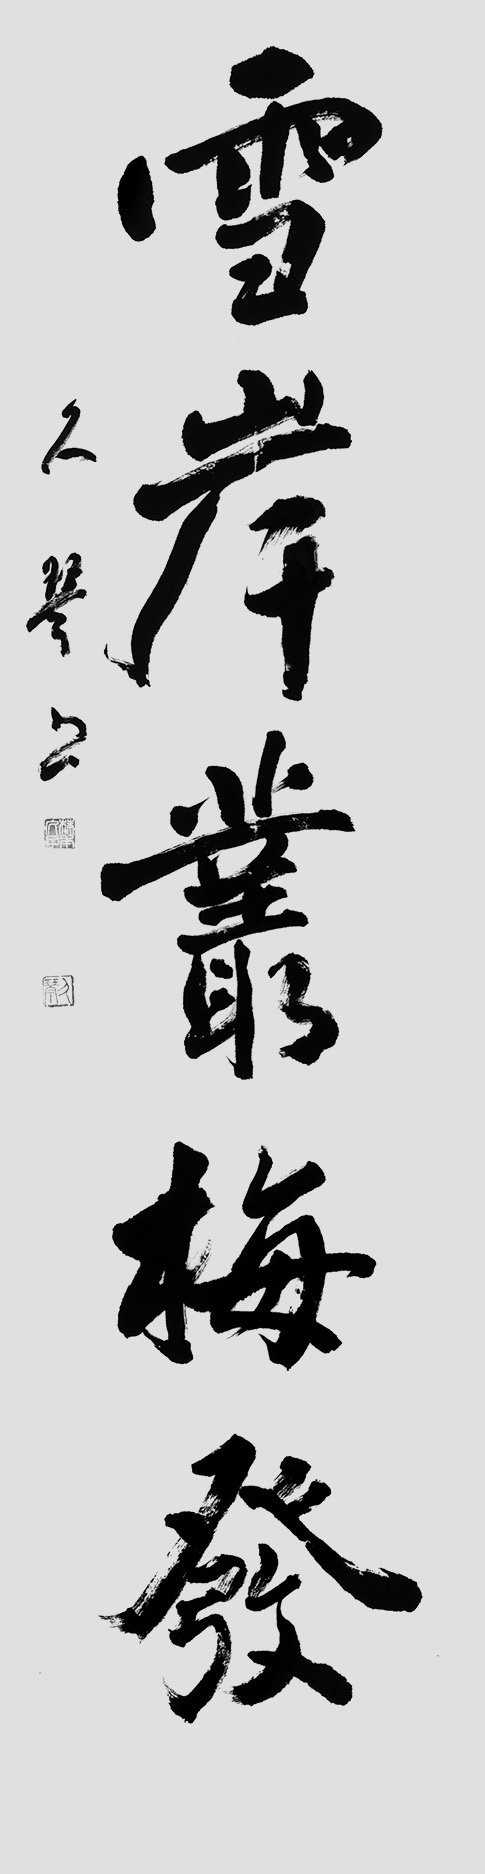 雪岸叢梅發
久琴書